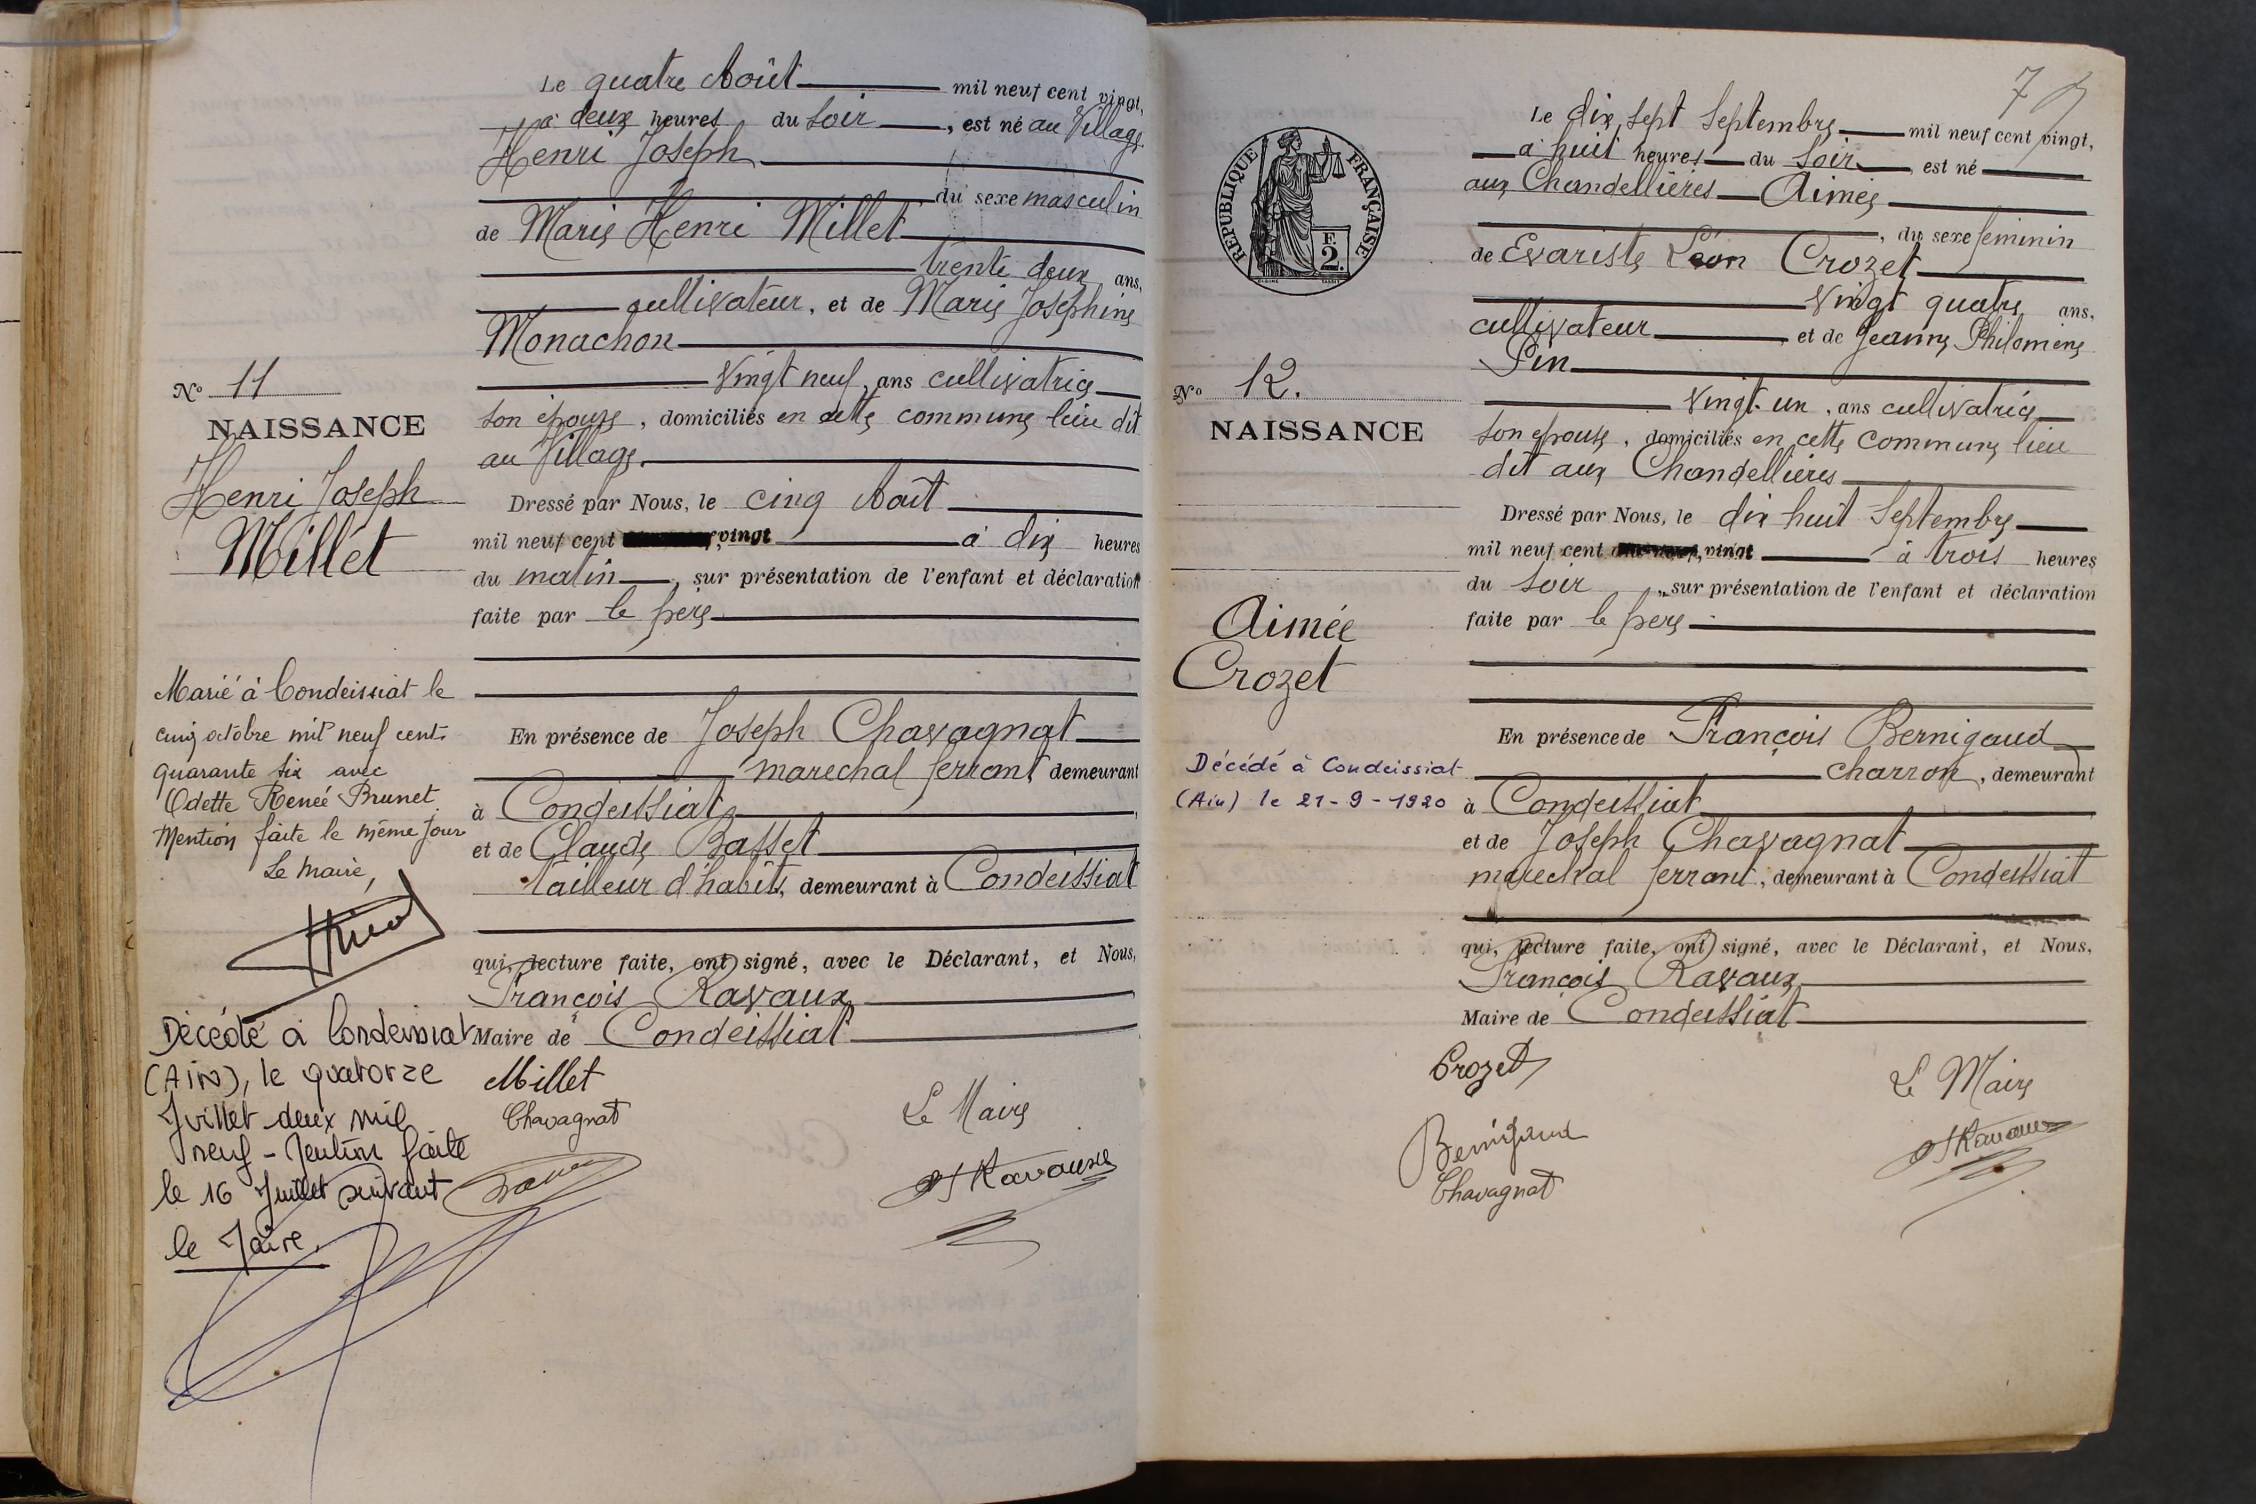 Le quatre Août mil neuf cent vingt,
à deux heures du soir, est né au Village
Henri Joseph
, du sexe masculin
de Marie Henri Millet
trente deux ans,
cultivateur, et de Marie Joséphine
Monachon
vingt neuf, ans cultivatrice
son épouse, domiciliés en cette commune lieu dit
au Village.
Dressé par Nous, le cinq Août
mil neuf cent vingt à dix heures
du matin, sur présentation de l'enfant et déclaration
faite par le père
En présence de Joseph Chavagnat
marechal ferrant demeurant
à Condeissiat
et de Claude Basset
tailleur d'habits, demeurant à Condeissiat
qui, lecture faite, ont signé, avec le Déclarant, et Nous,
François Ravaux
Maire de Condeissiat
Millet
Chavagnat
Le Maire
Ravaux
No 11
NAISSANCE
Henri Joseph
Millet
Marié à Condeissiat le
cinq octobre mil neuf cent
quarante six avec
Odette Renée Brunet
Mention faite le même jour
Le Maire,
Décédé à Condeissiat
(Ain), le quatorze
Juillet deux mil
neuf - Mention faite
le 16 Juillet suivant
le Maire.
7
Le dix sept Septembre mil neuf cent vingt,
à huit heures du soir, est né
aux Chandellières Aimée
, du sexe féminin
de Evariste Léon Crozet
Vingt quatre ans,
cultivateur, et de Jeanne Philomène
Pin
vingt-un, ans cultivatrice
son épouse, domiciliés en cette commune lieu
dit aux Chandellières
Dressé par Nous, le dix huit Septembre
mil neuf cent vingt à trois heures
du soir, sur présentation de l'enfant et déclaration
faite par le père
En présence de François Bernigaud
charron, demeurant
à Condeissiat
et de Joseph Chavagnat
marechal ferrant, demeurant à Condeissiat
qui, lecture faite, ont signé, avec le Déclarant, et Nous,
François Ravaux
Maire de Condeissiat
Crozet
Le Maire
Bernigaud
Ravaux
Chavagnat
RÉPUBLIQUE FRANÇAISE
F.
2.
No 12.
NAISSANCE
Aimée
Crozet
Décédé à Condeissiat
(Ain) le 21-9-1920